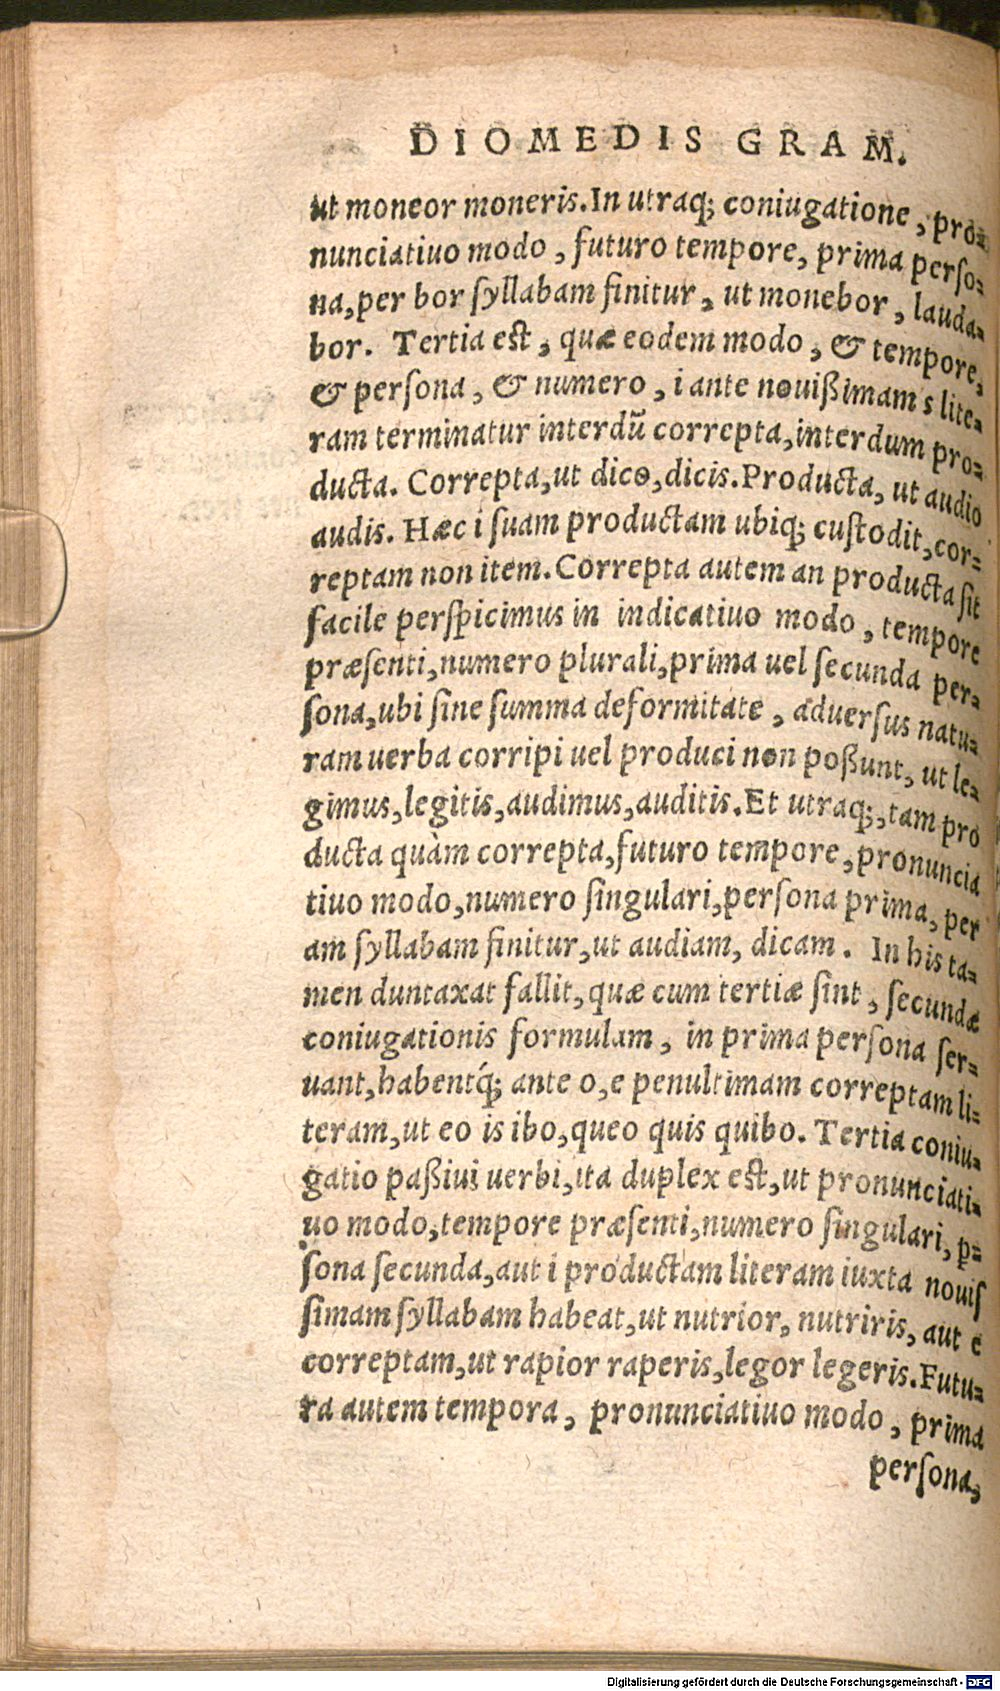 DIOMEDIS GRAM.
ut moneor moneris. In utraq; coniugatione, pro-
nunciatiuo modo, futuro tempore, prima perſo-
na, per bor ſyllabam finitur, ut monebor, lauda-
bor. Tertia eſt, quæ eodem modo, & tempore,
& perſona, & numero, i ante nouißimam s lite-
ram terminatur interdũ correpta, interdum pro-
ducta. Correpta, ut dico, dicis. Producta, ut audio
audis. Hæc i ſuam productam ubiq; cuſtodit, cor-
reptam non item. Correpta autem an producta ſit
facile perſpicimus in indicatiuo modo, tempore
præſenti, numero plurali, prima uel ſecunda per-
ſona, ubi ſine ſumma deformitate, aduerſus natu-
ram uerba corripi uel produci non poßunt, ut le-
gimus, legitis, audimus, auditis. Et utraq;, tam pro
ducta quàm correpta, futuro tempore, pronuncia
tiuo modo, numero ſingulari, perſona prima, per
am ſyllabam finitur, ut audiam, dicam. In his ta-
men duntaxat fallit, quæ cum tertiæ ſint, ſecundæ
coniugationis formulam, in prima perſona ſer-
uant, habentq́; ante o, e penultimam correptam li-
teram, ut eo is ibo, queo quis quibo. Tertia coniu-
gatio paßiui uerbi, ita duplex eſt, ut pronunciati-
uo modo, tempore præſenti, numero ſingulari, ꝑ-
ſona ſecunda, aut i productam literam iuxta nouiſ
ſimam ſyllabam habeat, ut nutrior, nutriris, aut e
correptam, ut rapior raperis, legor legeris. Futu-
ra autem tempora, pronunciatiuo modo, prima
perſona,
Digitalisierung gefördert durch die Deutsche Forschungsgemeinschaft - DFG